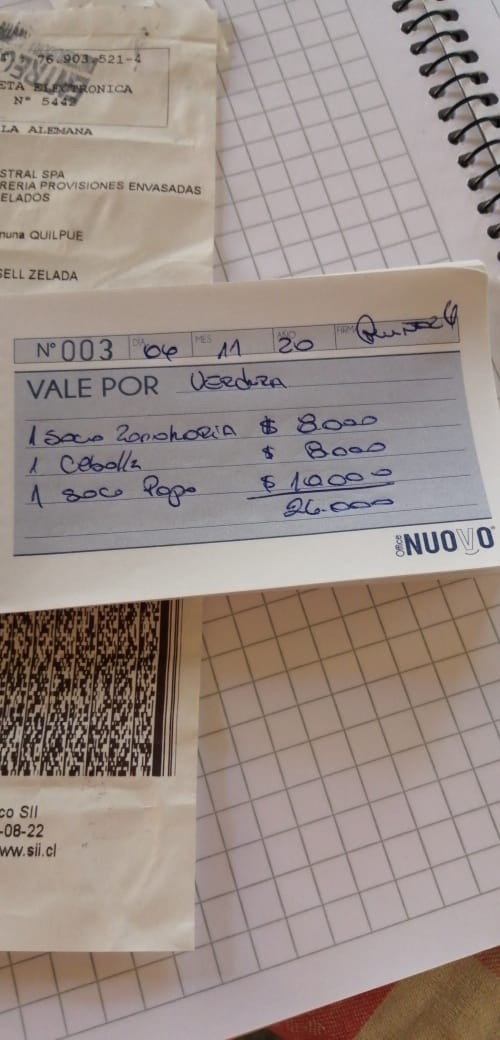 76.903.521-4
ENTREGA
ETA ELECTRONICA
N° 5442
LA ALEMANA
STRAL SPA
RERIA PROVISIONES ENVASADAS
ELADOS
nuna QUILPUE
SELL ZELADA
N° 003 DIA 04 MES 11 AÑO 20 FIRMA
VALE POR Verdura
1 Saco Zanahoria $ 8.000
1 Cebolla $ 8.000
1 Saco Papa $ 10.000
26.000
Office NUOVO
co SII
-08-22
ww.sii.cl